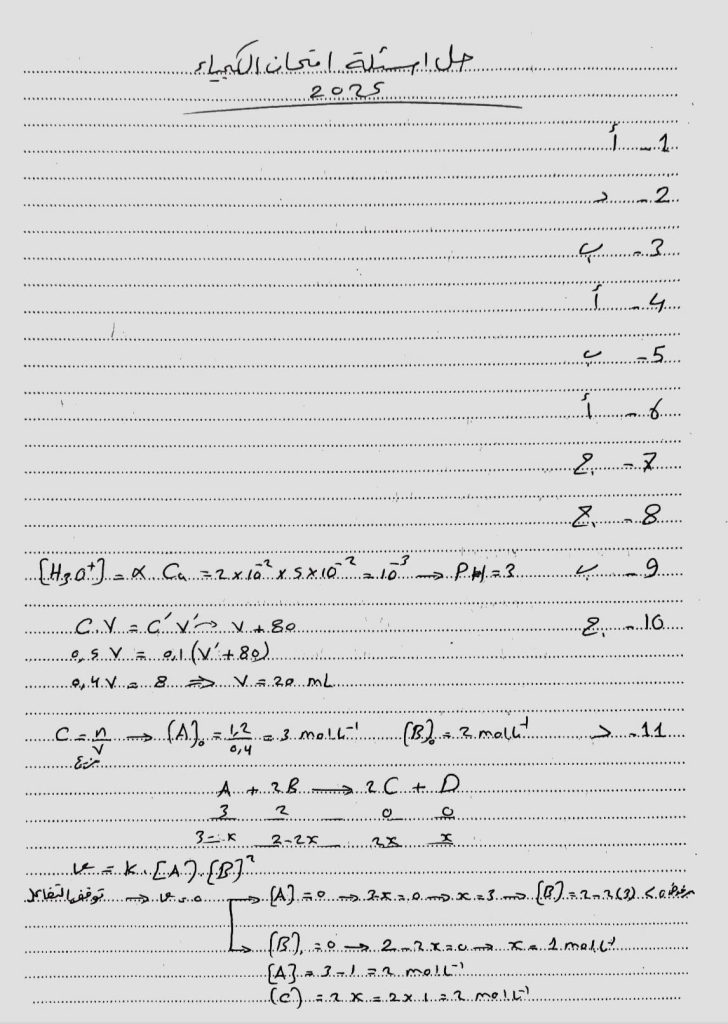 حل اسئلة امتحان الكيمياء
2025
1 - أ
2 - د
3 - ب
4 - أ
5 - ب
6 - أ
7 - ج
8 - ج
9 - ب [H3O+] = α Ca = 2×10^-2 × 5×10^-2 = 10^-3 → PH = 3
10 - ج C.V = C' V' → V + 80
0,5 V = 0,1 (V' + 80)
0,4 V = 8 ⇒ V = 20 mL
11 - د C = n/V → [A]₀ = 1,2/0,4 = 3 mol L^-1 [B]₀ = 2 mol L^-1
A + 2B → 2C + D
3 2 0 0
3-x 2-2x 2x x
v = k.[A].[B]^2
توقف التفاعل → v = 0 → [A] = 0 → 3-x = 0 → x = 3 → [B] = 2-2(3) < 0 مرفوض
→ [B] = 0 → 2-2x = 0 → x = 1 mol L^-1
[A] = 3-1 = 2 mol L^-1
[C] = 2x = 2×1 = 2 mol L^-1